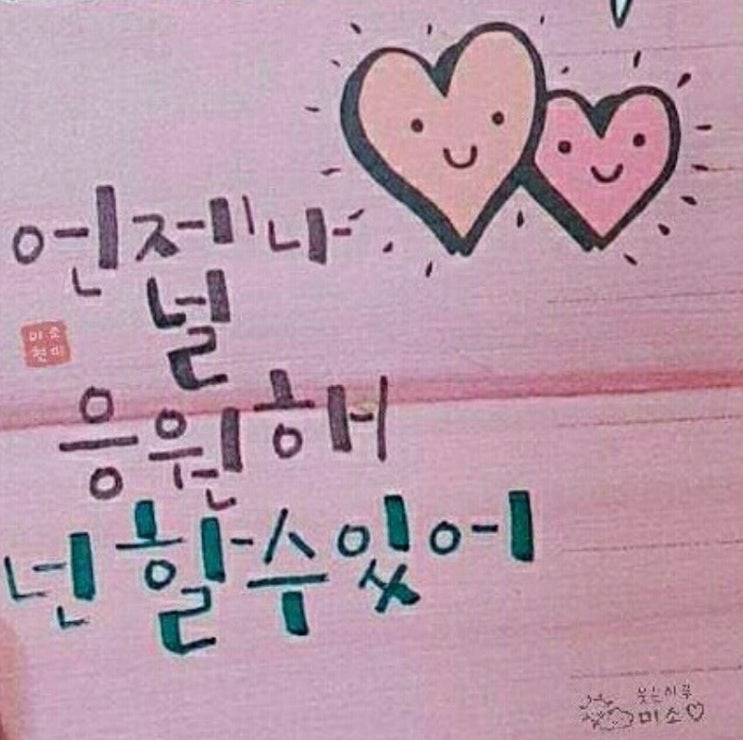 언제나
널
응원해
넌 할 수 있어
미소
현미
웃는하루
미소♡